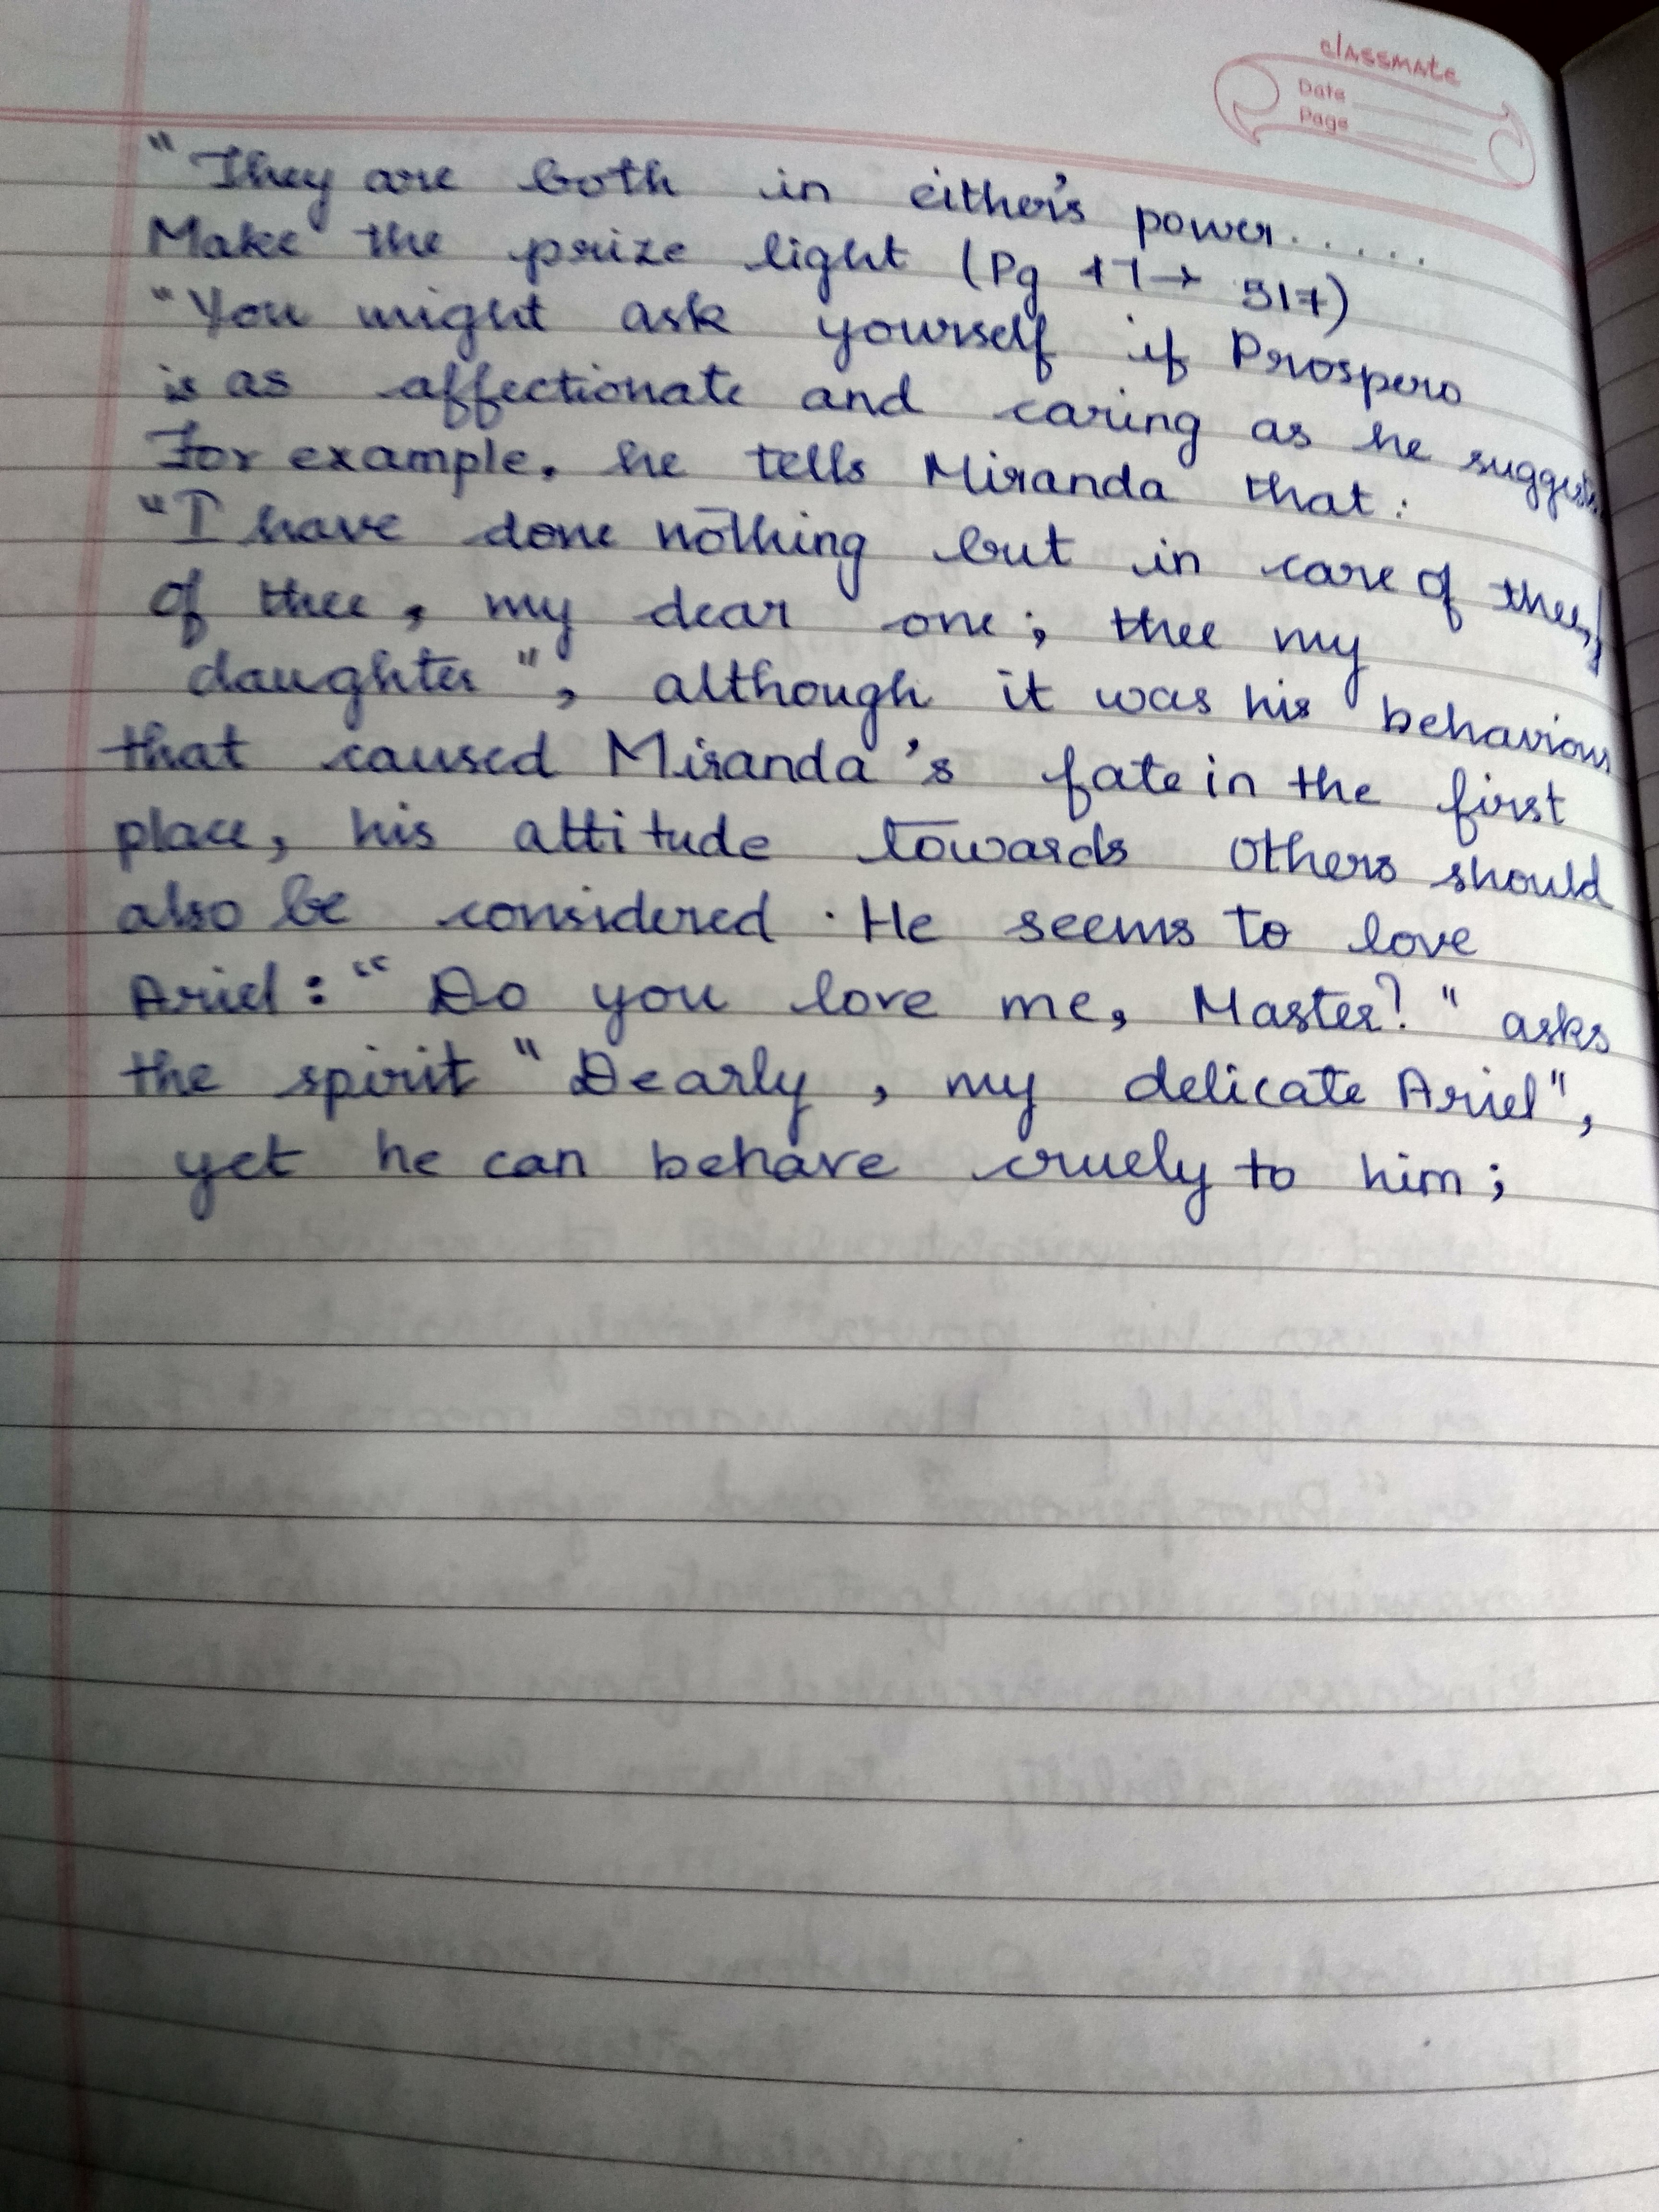 classmate
Date
Page
"They are both in either's power.....
Make the prize light (Pg 47→ 517)
"You might ask yourself if Prospero
is as affectionate and caring as he suggests.
For example, he tells Miranda that:
"I have done nothing but in care of thee,/
of thee, my dear one; thee my
daughter", although it was his behaviour
that caused Miranda's fate in the first
place, his attitude towards others should
also be considered. He seems to love
Ariel: "Do you love me, Master?" asks
the spirit "Dearly, my delicate Ariel",
yet he can behave cruely to him;